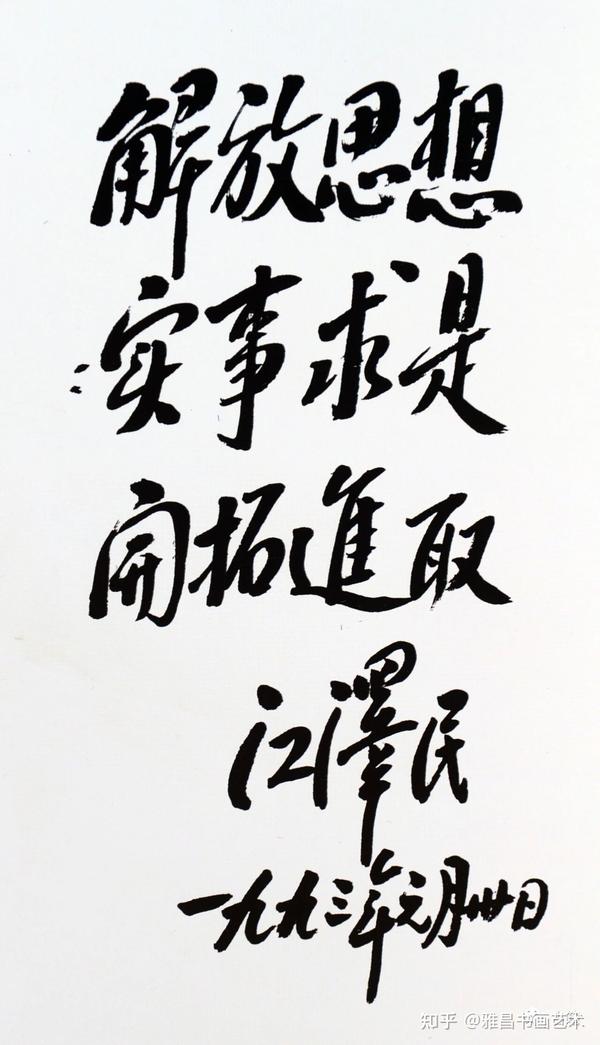 解放思想
实事求是
開拓進取
江澤民
一九九三年元月卅日
知乎 @雅昌书画艺术